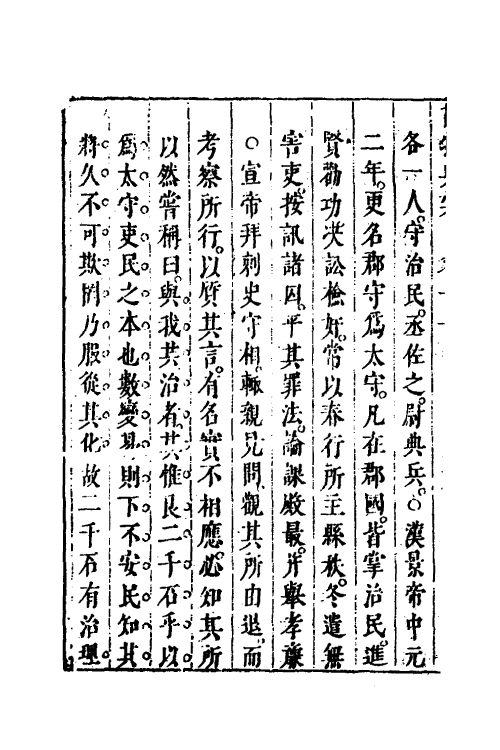 各一人。守治民。丞佐之。尉典兵。○漢景帝中元
二年。更名郡守爲太守。凡在郡國。皆掌治民。進
賢勸功決訟檢奸。常以春行所主縣秋冬遣無
害吏。按訊諸囚。平其罪法。論課殿最。并舉孝廉
○宣帝拜刺史守相。輒親見問。觀其所由。退而
考察所行。以質其言。有名實不相應。必知其所
以然。嘗稱曰。與我共治者。其惟良二千石乎。以
爲太守吏民之本也。數變易。則下不安。民知其
將久。不可欺罔。乃服從其化。故二千石有治理。